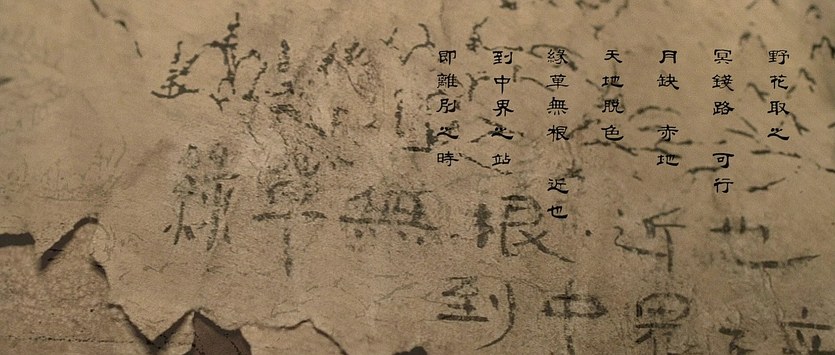 野花取之
冥錢路 可行
月缺 赤地
天地脫色
綠草無根 近也
到中界之站
即離別之時
綠草無根·近也
到中界之立